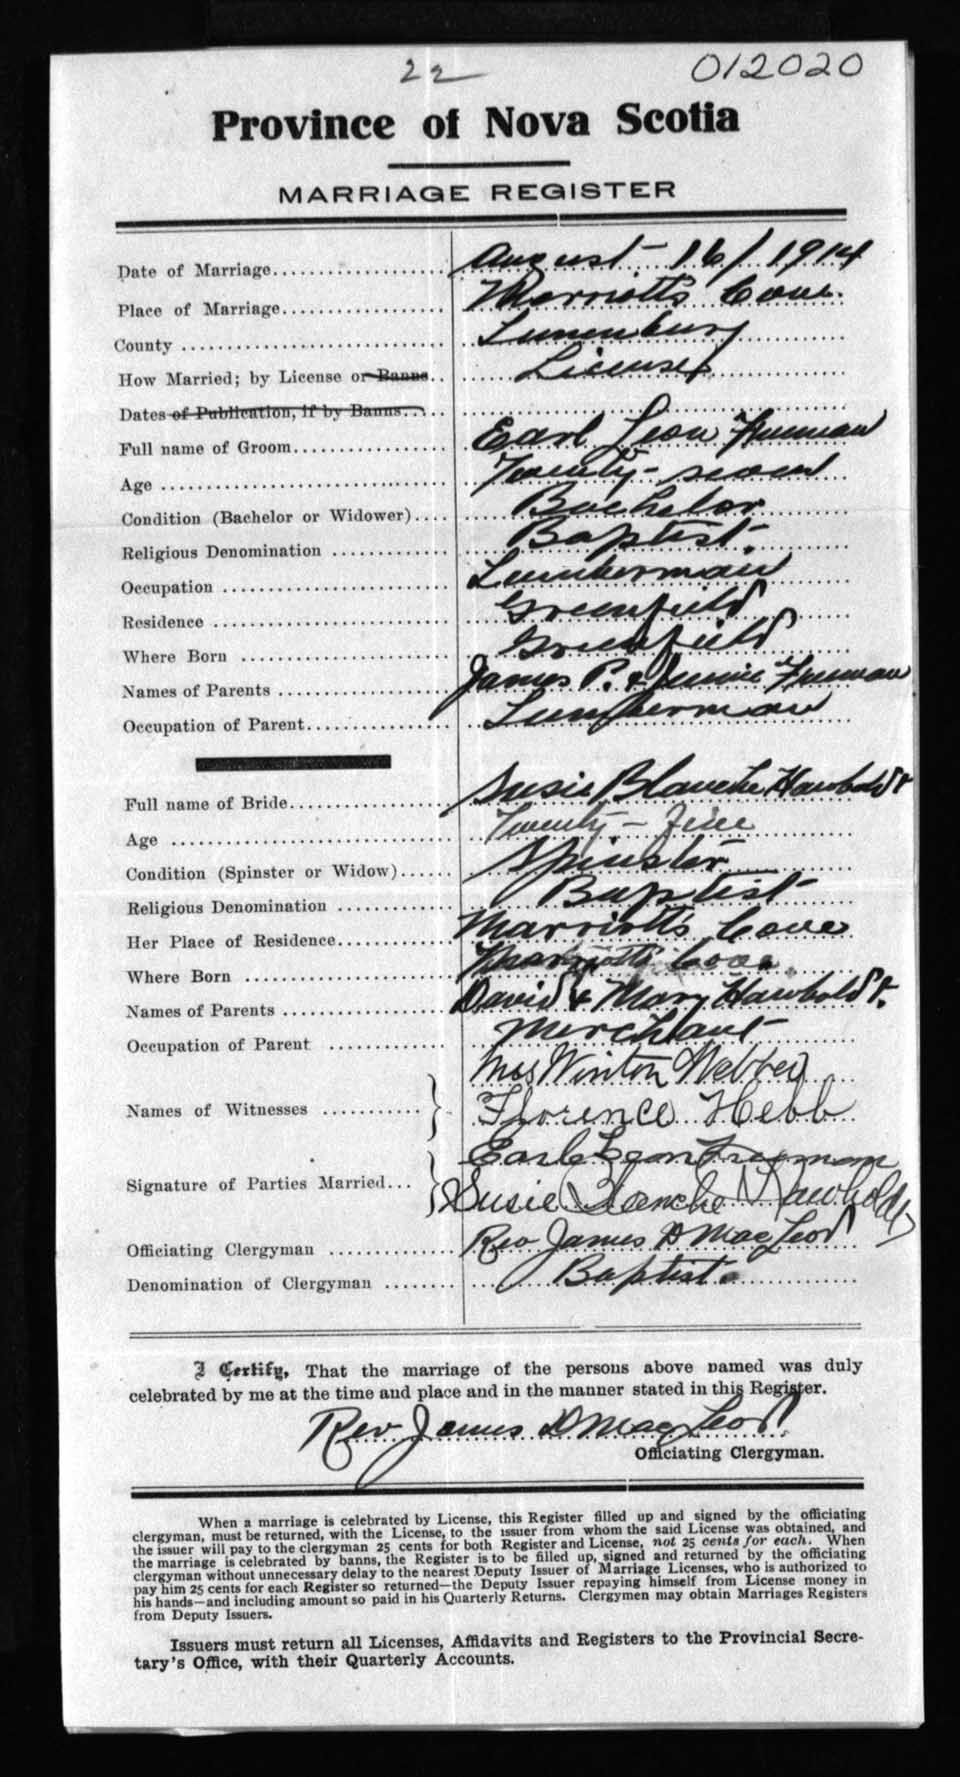 22 012020
Province of Nova Scotia
MARRIAGE REGISTER
Date of Marriage.................... August 16/1914
Place of Marriage.................. Marriott's Cove.
County ............................ Lunenburg
How Married; by License or Banns.. License
Dates of Publication, if by Banns......
Full name of Groom................. Earl Leon Freeman
Age ............................... Twenty-seven
Condition (Bachelor or Widower).... Bachelor
Religious Denomination ............ Baptist.
Occupation ........................ Lumberman
Residence ......................... Greenfield
Where Born ........................ Greenfield
Names of Parents .................. James P. & Jennie Freeman
Occupation of Parent............... Lumberman
Full name of Bride................. Susie Blanche Hawboldt
Age ............................... Twenty-five
Condition (Spinster or Widow)...... Spinster
Religious Denomination ............ Baptist
Her Place of Residence............. Marriott's Cove
Where Born ........................ Marriotts Cove.
Names of Parents .................. David & Mary Hawboldt.
Occupation of Parent .............. Merchant
Mrs Winton Webber
Names of Witnesses .......... Florence Hebb
Earle Leon Freeman
Signature of Parties Married... Susie Blanche Hawboldt
Officiating Clergyman ............. Rev James D MacLeod
Denomination of Clergyman ........ Baptist.
I Certify, That the marriage of the persons above named was duly
celebrated by me at the time and place and in the manner stated in this Register.
Rev James D MacLeod
Officiating Clergyman.
When a marriage is celebrated by License, this Register filled up and signed by the officiating
clergyman, must be returned, with the License, to the issuer from whom the said License was obtained, and
the issuer will pay to the clergyman 25 cents for both Register and License, not 25 cents for each. When
the marriage is celebrated by banns, the Register is to be filled up, signed and returned by the officiating
clergyman without unnecessary delay to the nearest Deputy Issuer of Marriage Licenses, who is authorized to
pay him 25 cents for each Register so returned—the Deputy Issuer repaying himself from License money in
his hands—and including amount so paid in his Quarterly Returns. Clergymen may obtain Marriages Registers
from Deputy Issuers.
Issuers must return all Licenses, Affidavits and Registers to the Provincial Secre-
tary's Office, with their Quarterly Accounts.